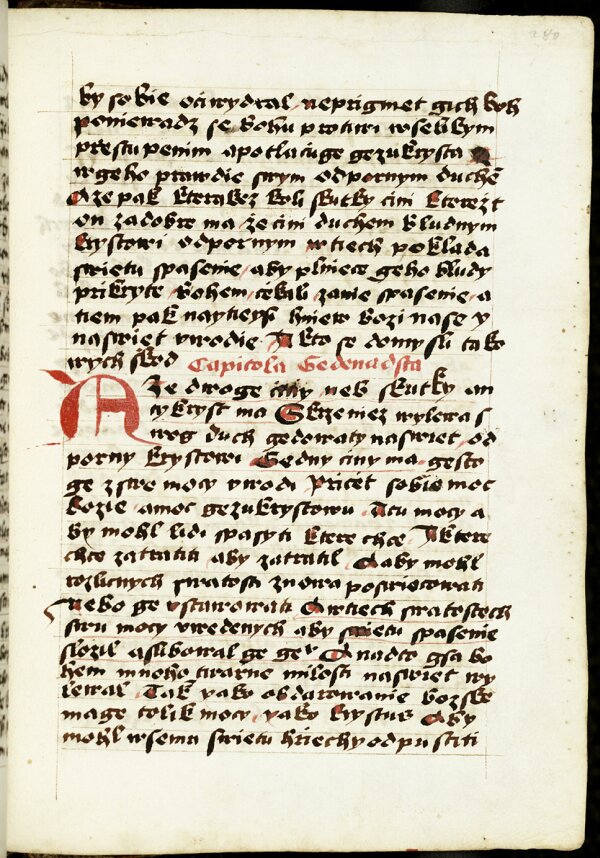 280
by sobie ociwydral neprigmet gich boh
poniewadz se bohu protiwi wselikym
prestupenim apotlacuge gezukrysta
wgeho prawdie swym odpornym duchē
A ze pak kterakez koli skutky cini kterezt
on zadobre ma ze cini duchem bludnym
krystowi odpornym w tiech poklada
swietu spasenie aby plniece geho bludy
prikryte bohem cekali zanie spasenie a
tiem pak naytieyss hniew bozi nase y
naswiet vwodie A kto se domysli tako
wych skod Capitola Gedenadsta
A Ze dwoge ciny neb skutky an
tykryst ma Skrze niez wylewa s
wog duch gedowaty naswiet od
porny krystowi Gedny ciny ma gesto
ge zstre mocy vwodi Pricet sobie moc
bozie amoc gezukrystowu A tu mocy a
by mohl lidi spasyti ktere chce A ktere
chce zatratiti aby zatratil A aby mohl
rozlicnych swatosti znowa poswiecowati
nebo ge vstawowati A wtiech swatostech
stru mocy vwedenych aby swietu spasenie
slozil aslibowal ge geᵛ A nadto gsa bo
hem mnoho twarne milosti naswiet wy
lewal Tak yako obdarowanie bozske
mage tolik mocy yako krystus Aby
mohl wsemu swietu hriechy odpustiti